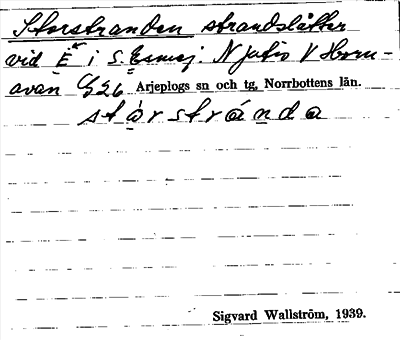 Storstranden strandslåtter
vid E i S. Esmej. N Jutis V Horn-
avan G26 Arjeplogs sn och tg, Norrbottens län.
stárstránda
Sigvard Wallström, 1939.